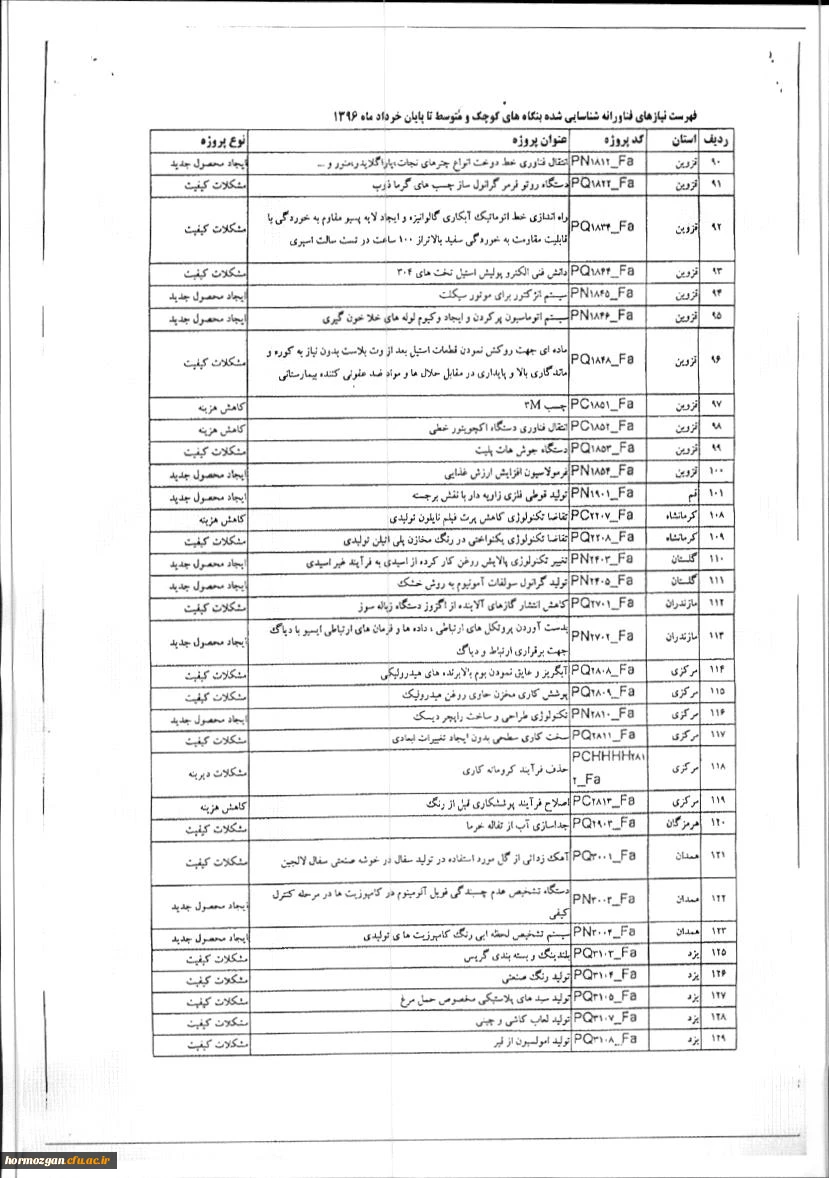 فهرست نیازهای فناورانه شناسایی شده بنگاه های کوچک و متوسط تا پایان خرداد ماه ۱۳۹۶
ردیف استان کد پروژه عنوان پروژه نوع پروژه
۹۰ قزوین PN۱۸۱۲_Fa انتقال فناوری خط دوخت انواع چترهای نجات،پاراگلایدر،منور و ... ایجاد محصول جدید
۹۱ قزوین PQ۱۸۲۲_Fa دستگاه روتو فرمر گرانول ساز چسب های گرما ذوب مشکلات کیفیت
۹۲ قزوین PQ۱۸۳۴_Fa راه اندازی خط اتوماتیک آبکاری گالوانیزه و ایجاد لایه پسیو مقاوم به خوردگی با
قابلیت مقاومت به خوردگی سفید بالاتراز ۱۰۰ ساعت در تست سالت اسپری مشکلات کیفیت
۹۳ قزوین PQ۱۸۴۴_Fa دانش فنی الکترو پولیش استیل تخت های ۳۰۴ مشکلات کیفیت
۹۴ قزوین PN۱۸۴۵_Fa سیستم انژکتور برای موتور سیکلت ایجاد محصول جدید
۹۵ قزوین PN۱۸۴۶_Fa سیستم اتوماسیون پرکردن و ایجاد وکیوم لوله های خلا خون گیری ایجاد محصول جدید
۹۶ قزوین PQ۱۸۴۸_Fa ماده ای جهت روکش نمودن قطعات استیل بعد از وت بلاست بدون نیاز به کوره و
ماندگاری بالا و پایداری در مقابل حلال ها و مواد ضد عفونی کننده بیمارستانی مشکلات کیفیت
۹۷ قزوین PC۱۸۵۱_Fa چسب ۳M کاهش هزینه
۹۸ قزوین PC۱۸۵۲_Fa انتقال فناوری دستگاه اکچویتور خطی کاهش هزینه
۹۹ قزوین PQ۱۸۵۳_Fa دستگاه جوش هات پلیت مشکلات کیفیت
۱۰۰ قزوین PN۱۸۵۴_Fa فرمولاسیون افزایش ارزش غذایی ایجاد محصول جدید
۱۰۱ قم PN۱۹۰۱_Fa تولید قوطی فلزی زاویه دار با نقش برجسته ایجاد محصول جدید
۱۰۸ کرمانشاه PC۲۲۰۷_Fa تقاضا تکنولوژی کاهش پرت فیلم نایلون تولیدی کاهش هزینه
۱۰۹ کرمانشاه PQ۲۲۰۸_Fa تقاضا تکنولوژی یکنواختی در رنگ مخازن پلی اتیلن تولیدی مشکلات کیفیت
۱۱۰ گلستان PN۲۴۰۳_Fa تغییر تکنولوژی پالایش روغن کار کرده از اسیدی به فرآیند غیر اسیدی ایجاد محصول جدید
۱۱۱ گلستان PN۲۴۰۵_Fa تولید گرانول سولفات آمونیوم به روش خشک ایجاد محصول جدید
۱۱۲ مازندران PQ۲۷۰۱_Fa کاهش انتشار گازهای آلاینده از اگزوز دستگاه زباله سوز مشکلات کیفیت
۱۱۳ مازندران PN۲۷۰۲_Fa بدست آوردن پروتکل های ارتباطی ، داده ها و فرمان های ارتباطی ایسیو با دیاگ
جهت برقراری ارتباط و دیاگ ایجاد محصول جدید
۱۱۴ مرکزی PQ۲۸۰۸_Fa آبگریز و عایق نمودن بوم بالابرنده های هیدرولیکی مشکلات کیفیت
۱۱۵ مرکزی PQ۲۸۰۹_Fa پوشش کاری مخزن حاوی روغن هیدرولیک مشکلات کیفیت
۱۱۶ مرکزی PN۲۸۱۰_Fa تکنولوژی طراحی و ساخت راپچر دیسک ایجاد محصول جدید
۱۱۷ مرکزی PQ۲۸۱۱_Fa سخت کاری سطحی بدون ایجاد تغییرات ابعادی مشکلات کیفیت
۱۱۸ مرکزی PCHHHH۲۸۱
۲_Fa حذف فرآیند کروماته کاری مشکلات دیرینه
۱۱۹ مرکزی PC۲۸۱۳_Fa اصلاح فرآیند پوششکاری قبل از رنگ کاهش هزینه
۱۲۰ هرمزگان PQ۲۹۰۳_Fa جداسازی آب از تفاله خرما مشکلات کیفیت
۱۲۱ همدان PQ۳۰۰۱_Fa آهک زدائی از گل مورد استفاده در تولید سفال در خوشه صنعتی سفال لالجین مشکلات کیفیت
۱۲۲ همدان PN۳۰۰۳_Fa دستگاه تشخیص عدم چسبندگی فویل آلومینوم در کامپوزیت ها در مرحله کنترل
کیفی ایجاد محصول جدید
۱۲۳ همدان PN۳۰۰۴_Fa سیستم تشخیص لحظه ایی رنگ کامپوزیت های تولیدی ایجاد محصول جدید
۱۲۵ یزد PQ۳۱۰۳_Fa بلندینگ و بسته بندی گریس مشکلات کیفیت
۱۲۶ یزد PQ۳۱۰۴_Fa تولید رنگ صنعتی مشکلات کیفیت
۱۲۷ یزد PQ۳۱۰۵_Fa تولید سبد های پلاستیکی مخصوص حمل مرغ مشکلات کیفیت
۱۲۸ یزد PQ۳۱۰۷_Fa تولید لعاب کاشی و چینی مشکلات کیفیت
۱۲۹ یزد PQ۳۱۰۸_Fa تولید امولسیون از قیر مشکلات کیفیت
hormozgan.cfu.ac.ir